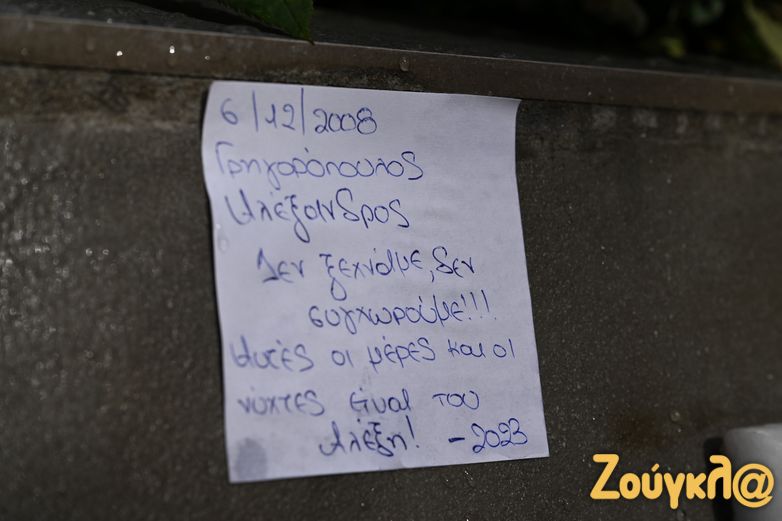 6/12/2008
Γρηγορόπουλος
Αλέξανδρος
Δεν ξεχνάμε, δεν
συγχωρούμε!!!
Αυτές οι μέρες και οι
νύχτες είναι του
Αλέξη! - 2023
Ζούγκλ@